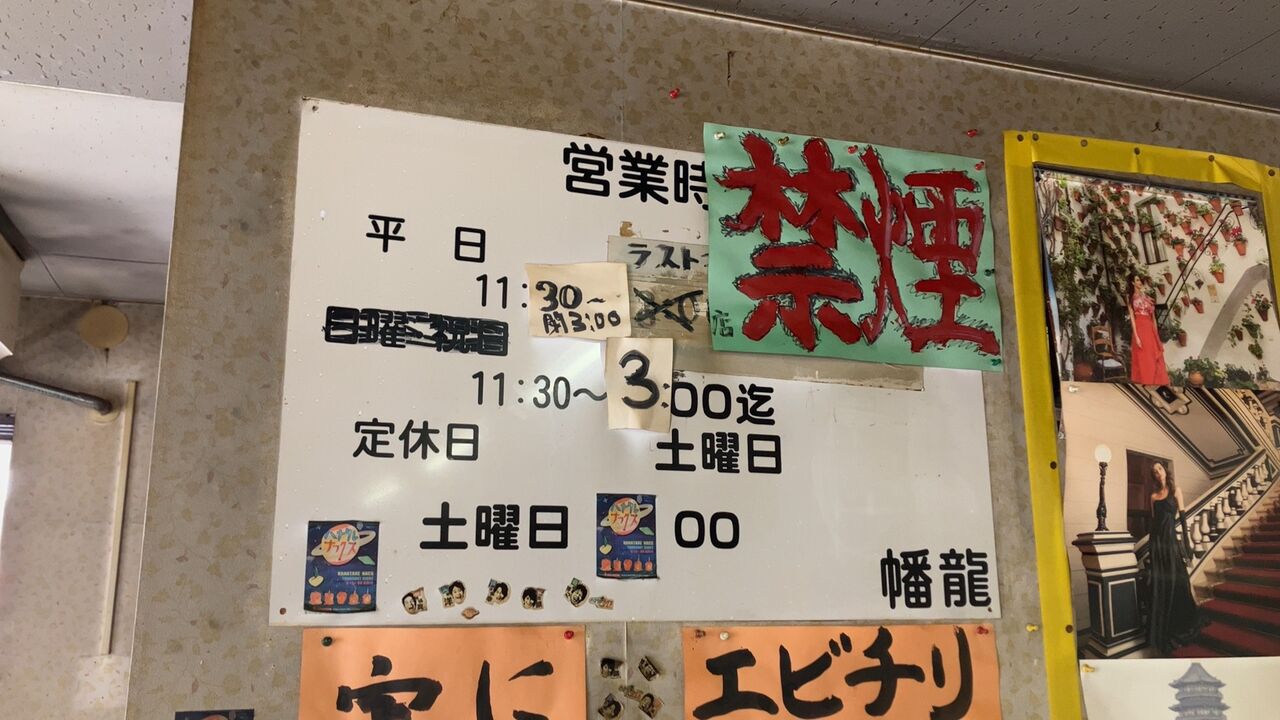 営業時
禁煙
平日
ラスト
11:30～
閉3:00
店
日曜・祝日
11:30～3:00迄
定休日
土曜日
土曜日
00
幡龍
ハナタレナックス
エビチリ